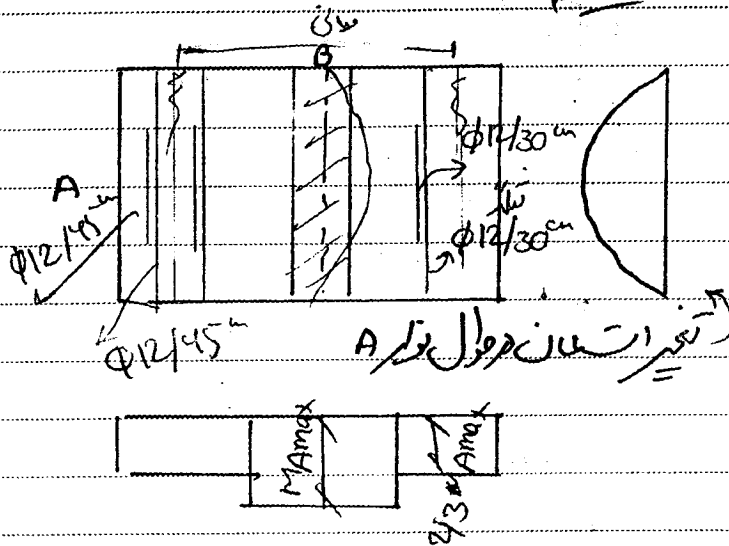 B
φ12/30 cm
A
φ12/30 cm
φ12/45 cm
φ12/45 cm
تغییرات ممان در طول نوار A
MAmax
2/3 MAmax